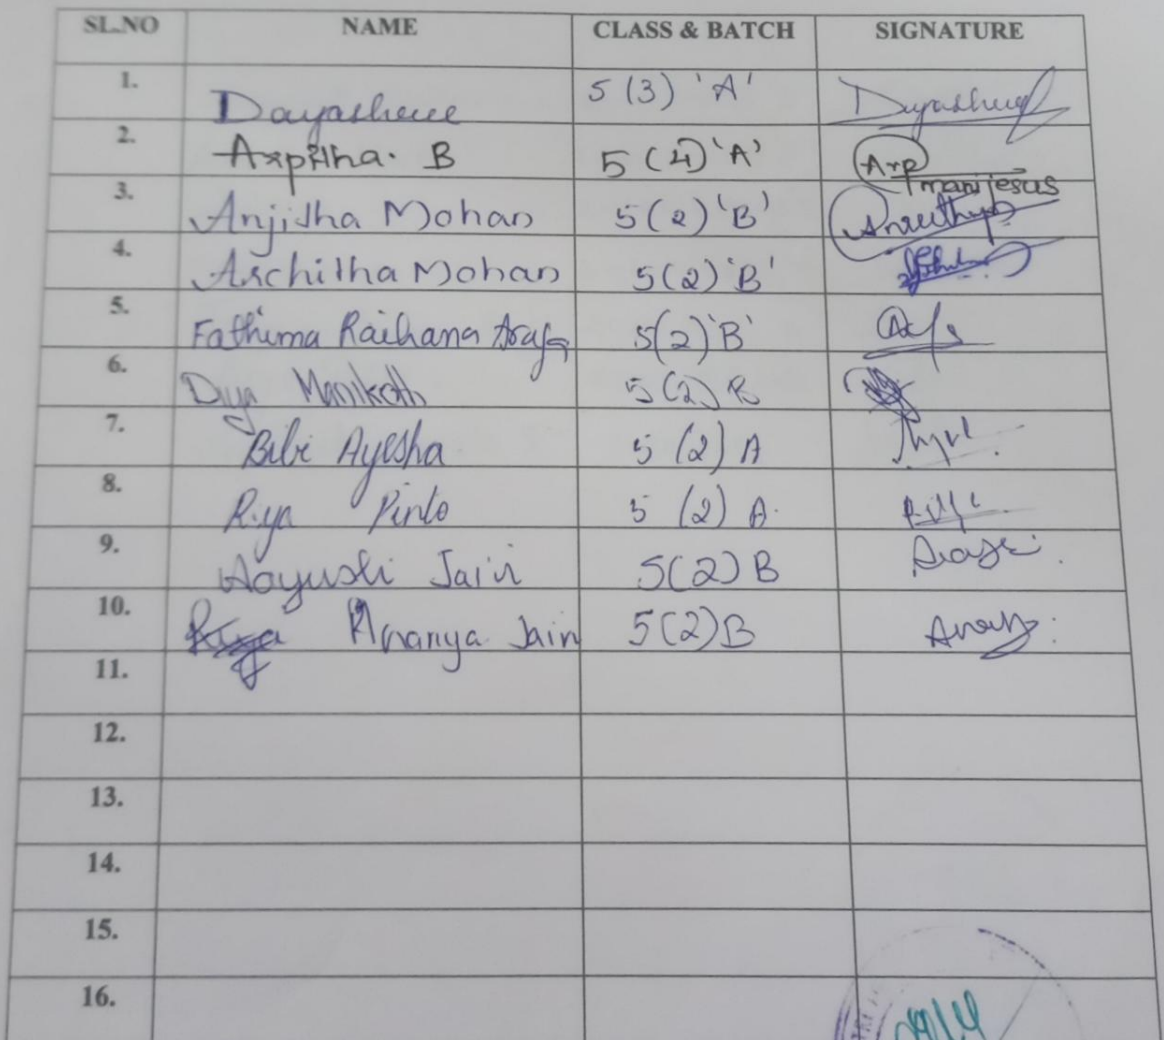 SL.NO NAME CLASS & BATCH SIGNATURE
1. Dayashree 5 (3) 'A'
2. Arpitha. B 5 (4) 'A' Arp
manijesus
3. Anjitha Mohan 5(2) 'B'
4. Architha Mohan 5(2) 'B'
5. Fathima Raihana Arafa 5(2) 'B'
6. Diya Manikoth 5(2) B
7. Bibi Ayesha 5 (2) A
8. Riya Pinto 5 (2) A.
9. Aayushi Jain 5(2) B
10. Riya Ananya Jain 5(2) B
11.
12.
13.
14.
15.
16.